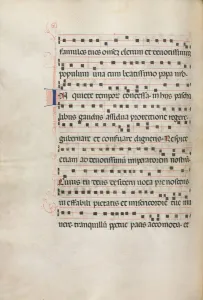 famulos tuos omnem clerum et devotissimum
populum una cum beatissimo papa nostro
quiete temporum concessa in his pasca
libus gaudiis assidua protectione regere
gubernare et conservare digneris Respice
etiam ad devotissimum imperatorem nostrum
Cuius tu deus desiderii vota prenoscens
ineffabili pietatis et misericordie tue mu
nere tranquillum perpetue pacis accomoda et